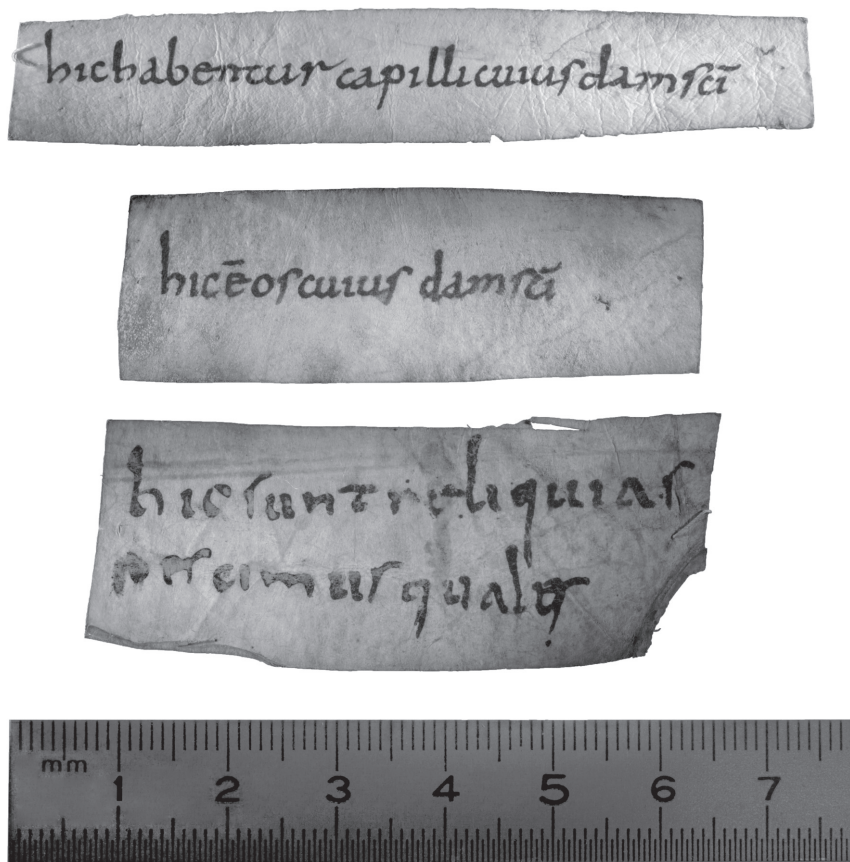 hichabentur capillicuiusdamscī
hicēoscuius damscī
hic sunt reliquias
nescimus quales
mm 1 2 3 4 5 6 7